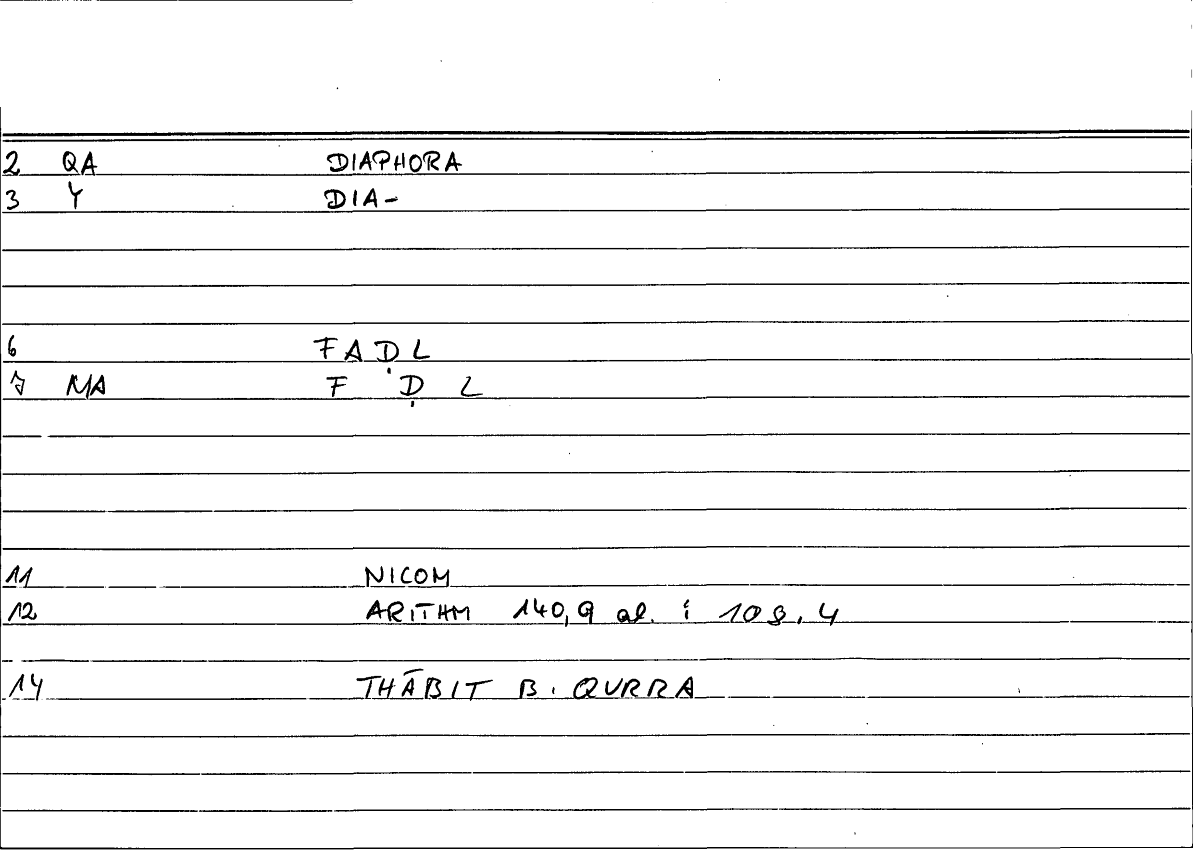 2 QA DIAPHORA
3 Y DIA-
6 FAḌL
7 MA F Ḍ L
11 NICOM
12 ARITHM 140,9 al. ; 108,4
14 THĀBIT B. QURRA